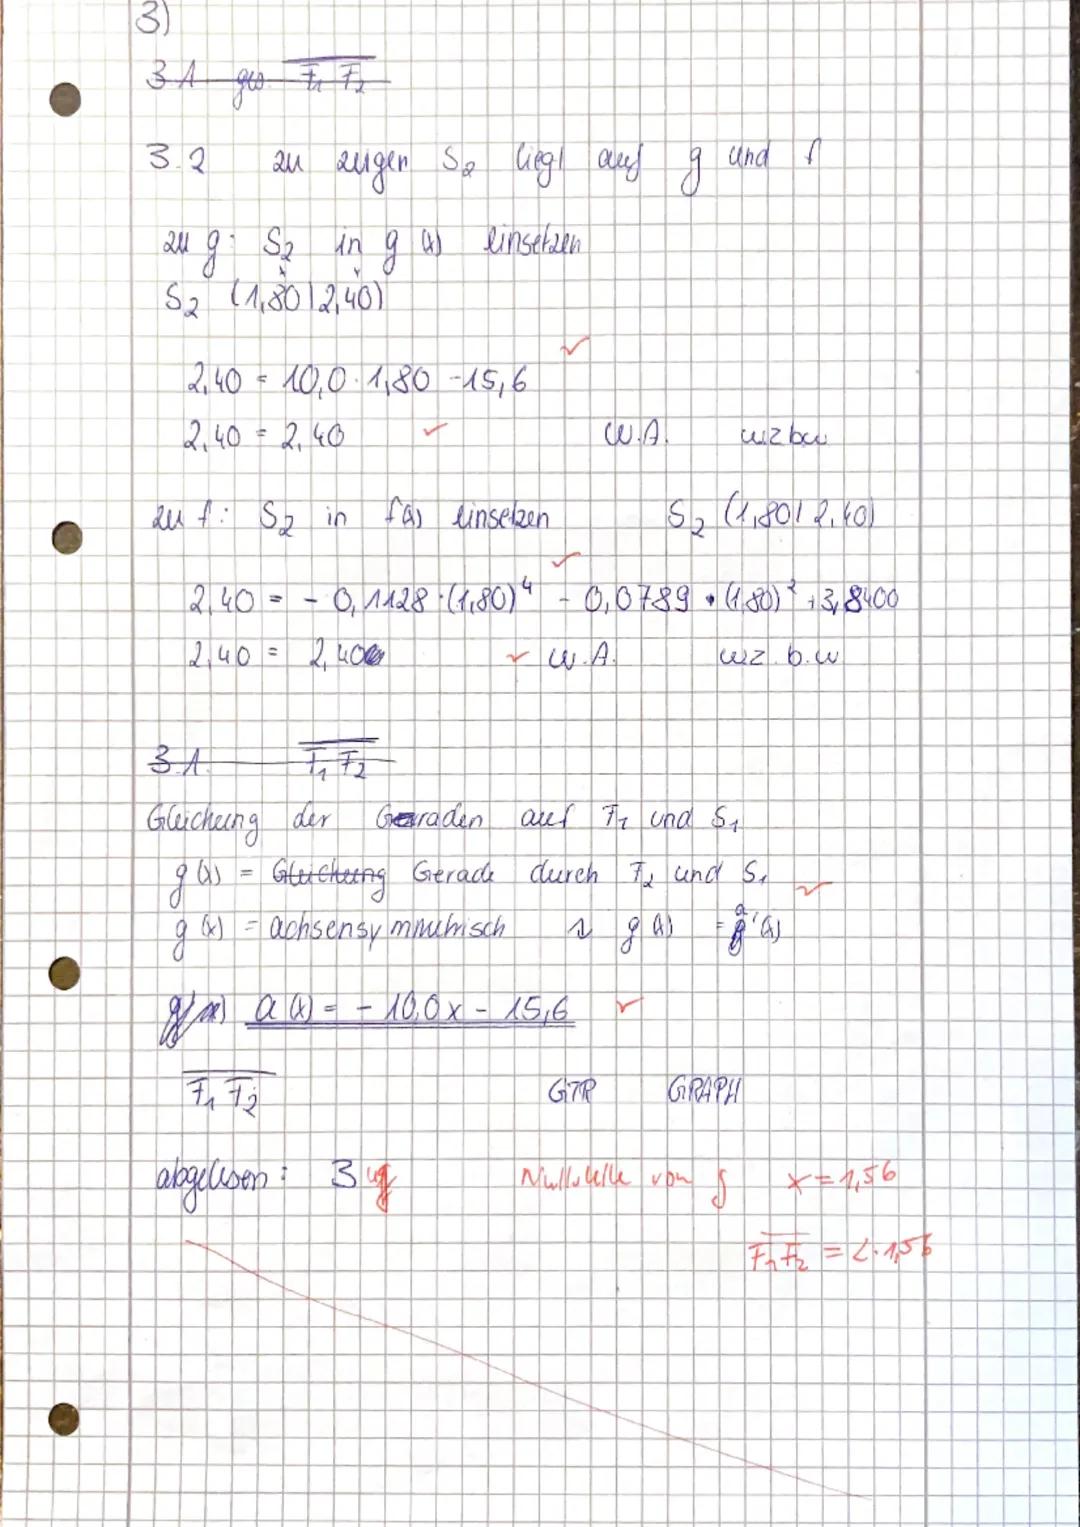 3)
3.1 ges. F₁ F₂
3.2 zu zeigen S₂ liegt auf g und f
zu g: S₂ in g(x) einsetzen
S₂ (1,80|2,40)
2,40 = 10,0 · 1,80 - 15,6 ✓
2,40 = 2,40 ✓ w.A. wzbw
zu f: S₂ in f(x) einsetzen S₂ (1,80|2,40)
2,40 = - 0,1128 · (1,80)⁴ - 0,0789 · (1,80)² + 3,8400 ✓
2,40 = 2,40 ✓ w.A. wz.b.w
3.1. F₁ F₂
Gleichung der Geraden auf F₁ und S₁
g(x) = Gleichung Gerade durch F₂ und S₁ ✓
g(x) = achsensymmetrisch g(x) = a(x)
a(x) = - 10,0x - 15,6 ✓
F₁ F₂ GTR GRAPH
abgelesen: 3 Nullstelle von g x = 1,56
F₁F₂ = 2·1,56